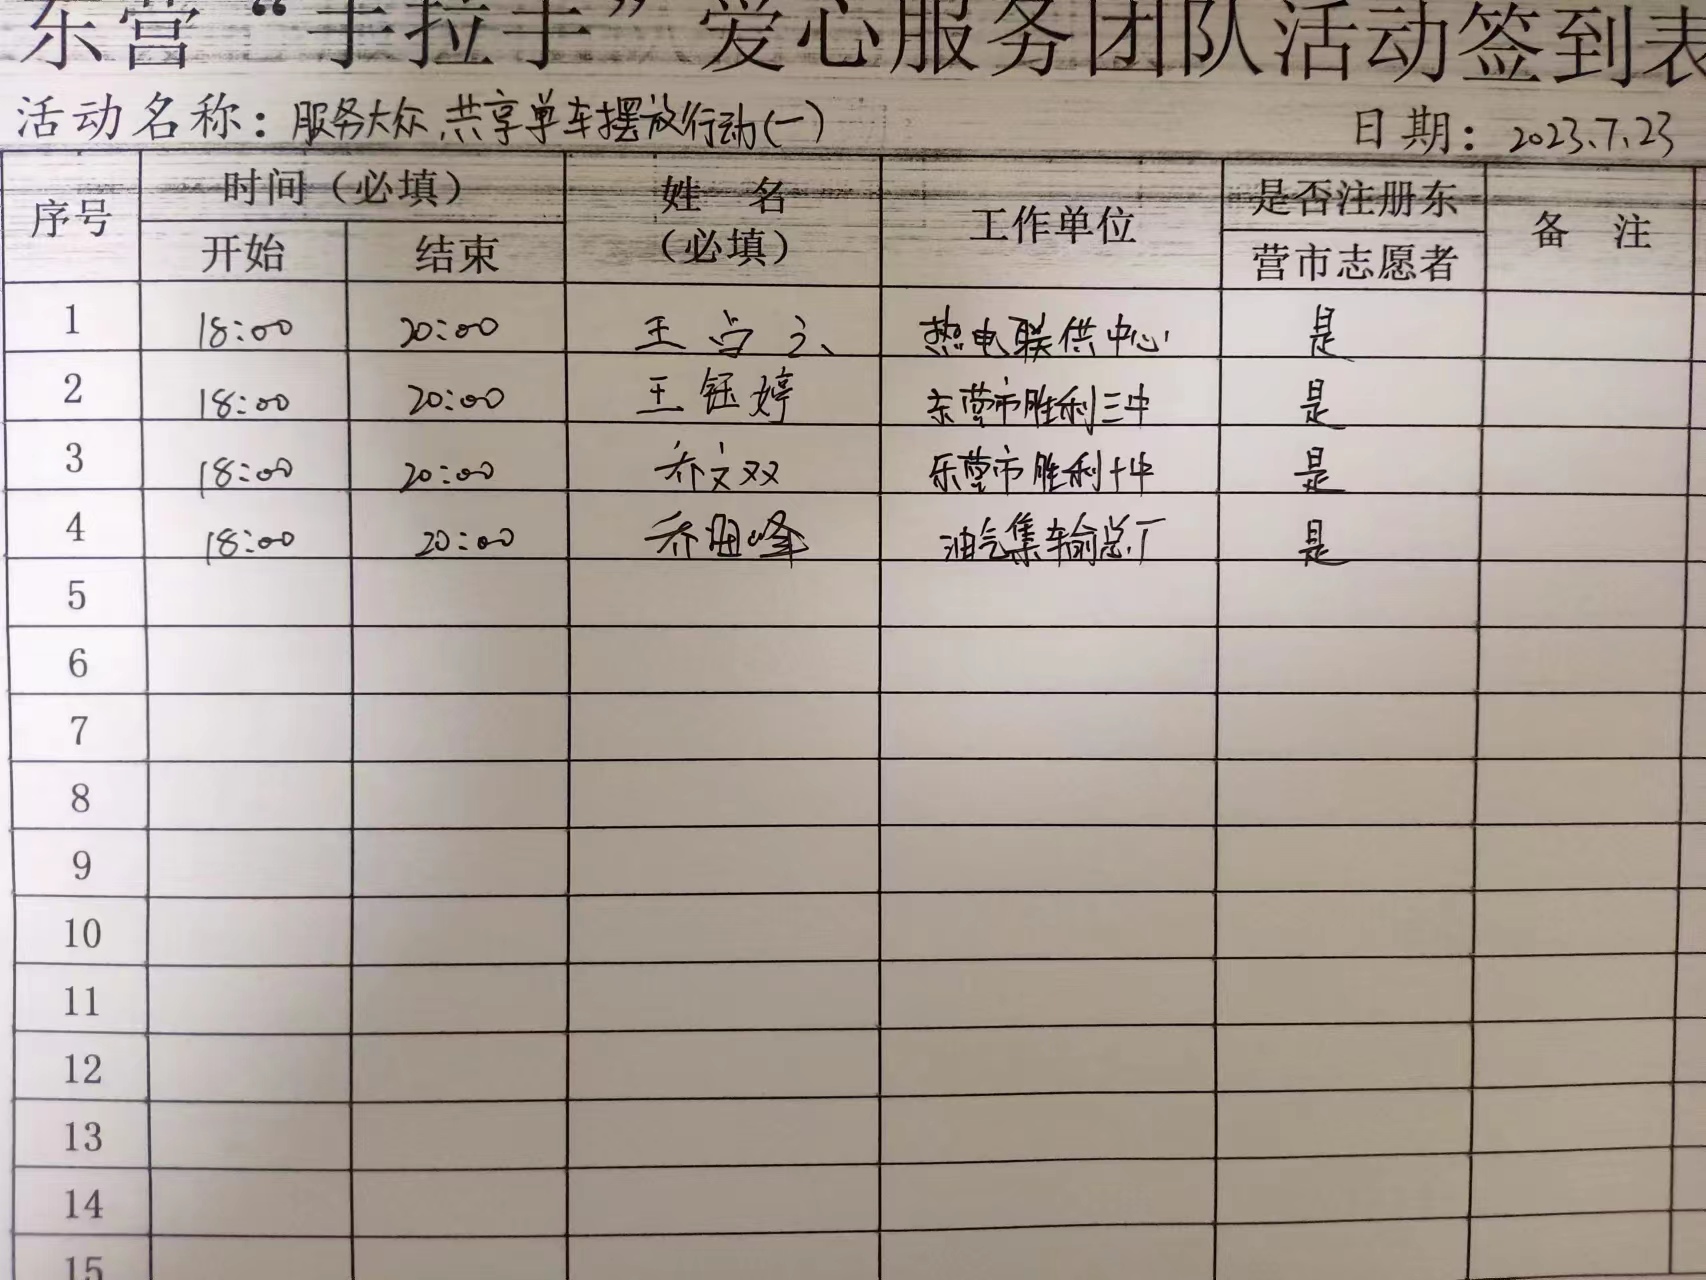 东营“手拉手”爱心服务团队活动签到表
活动名称：服务大众 共享单车摆放行动(一) 日期：2023.7.23
序号 时间（必填） 姓 名（必填） 工作单位 是否注册东营市志愿者 备 注
开始 结束
1 18:00 20:00 王 热电联供中心 是
2 18:00 20:00 王钰婷 东营市胜利三中 是
3 18:00 20:00 乔文双 东营市胜利十中 是
4 18:00 20:00 乔 峰 油气集输总厂 是
5
6
7
8
9
10
11
12
13
14
15